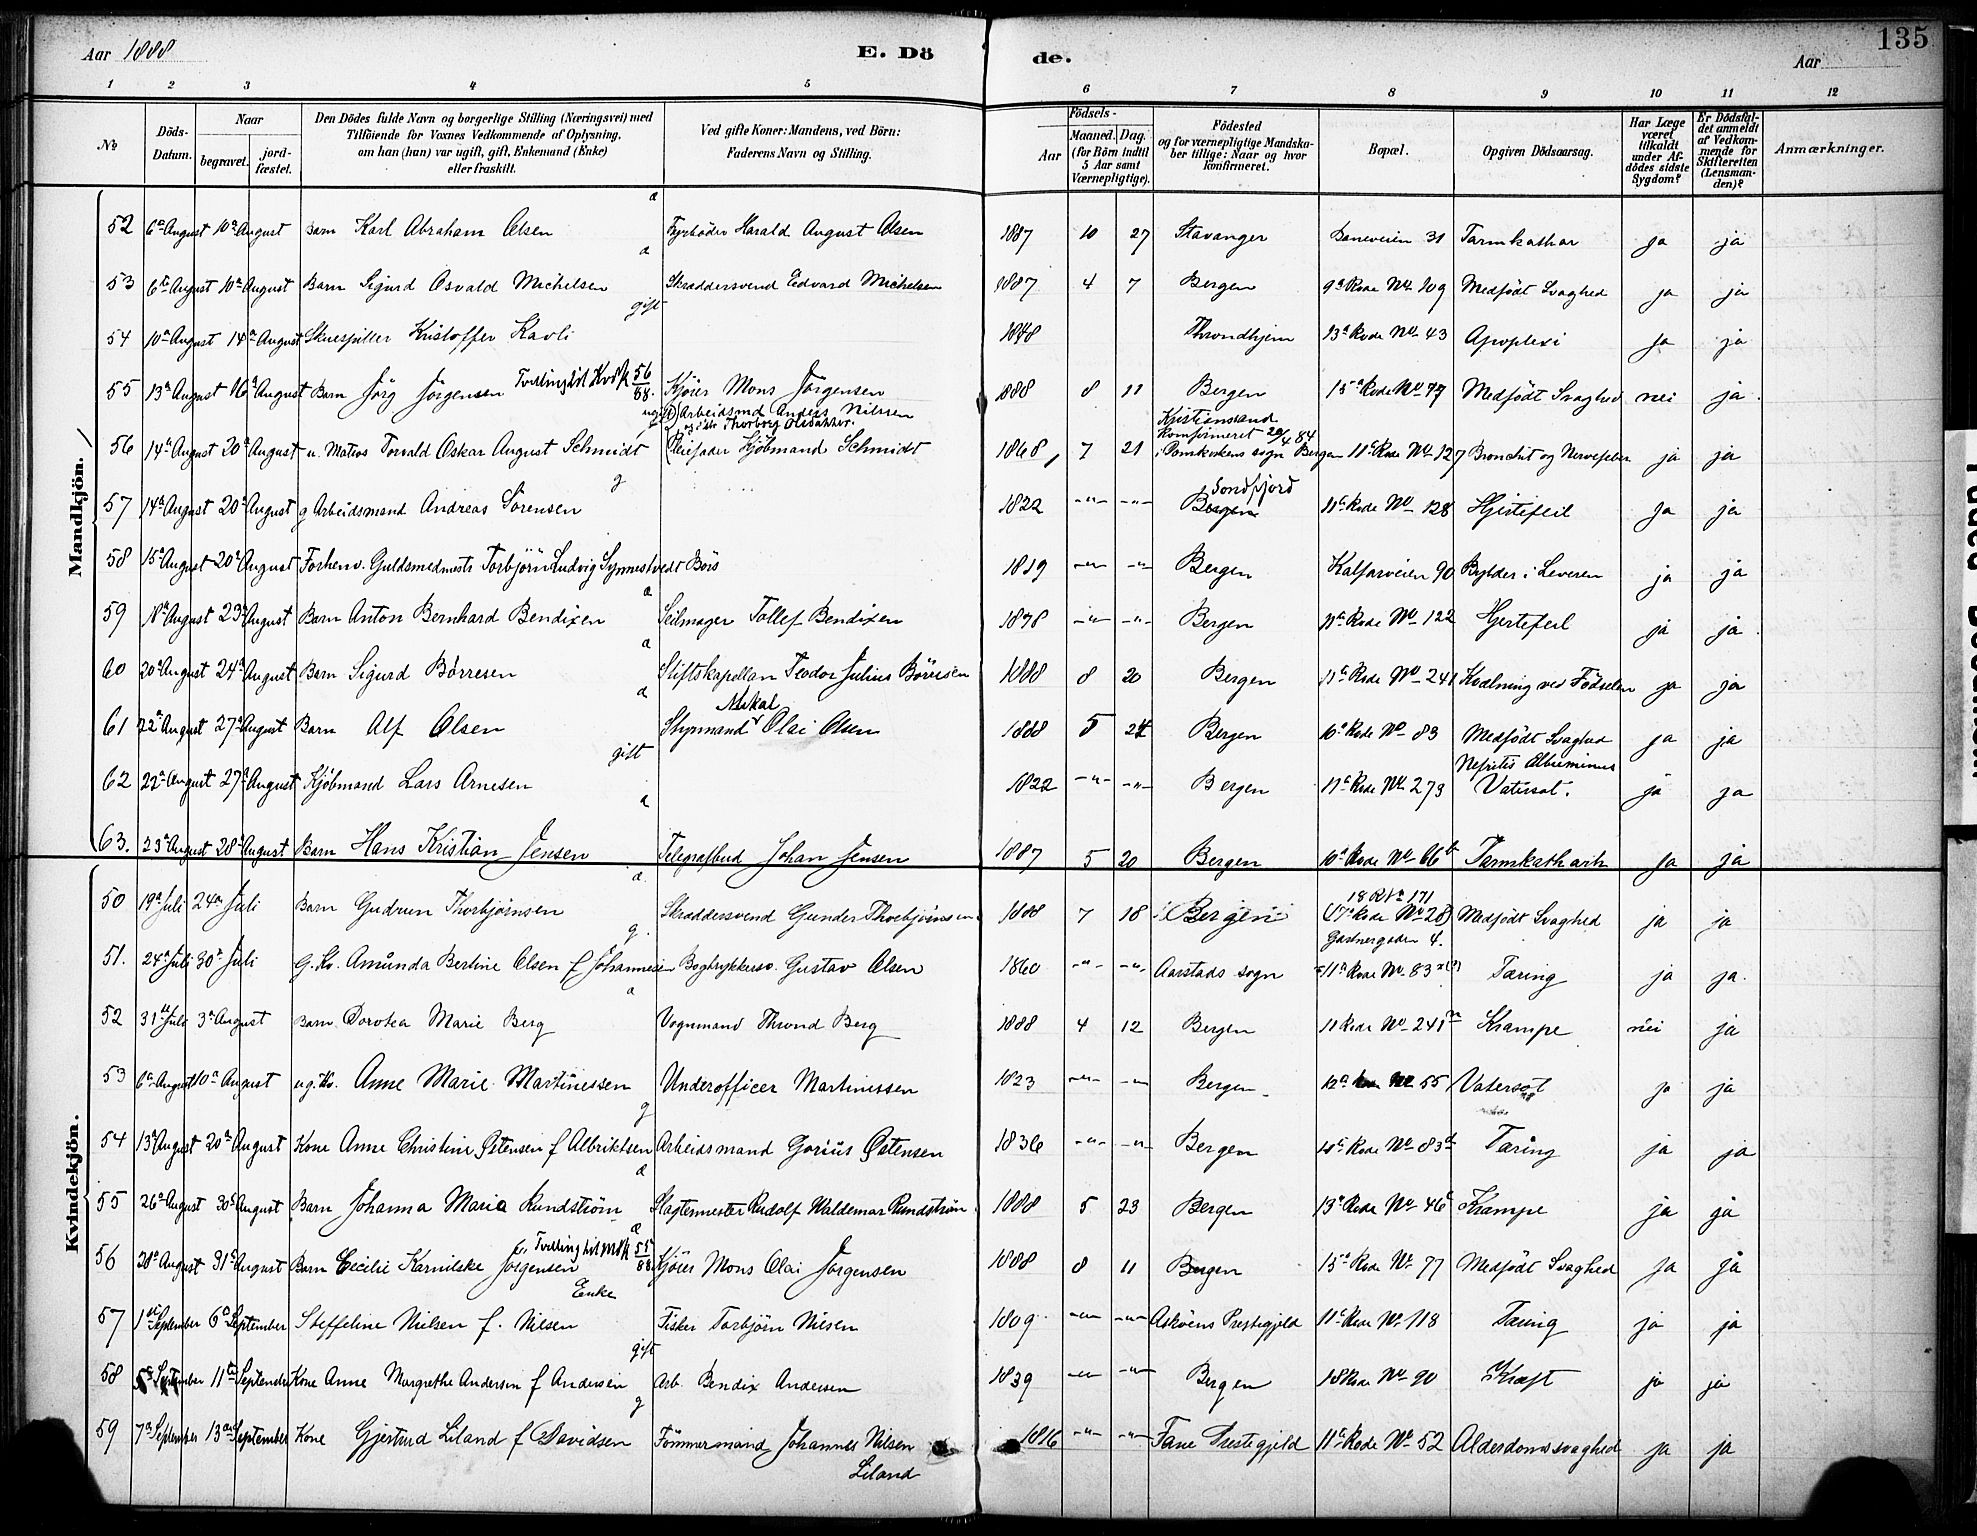 135
Aar 1888 E. Döde. Aar
1 2 3 4 5 6 7 8 9 10 11 12
№ Döds-Datum. Naar begravet. jordfæstet. Den Dödes fulde Navn og borgerlige Stilling (Næringsvei) med Tilföiende for Voxnes Vedkommende af Oplysning, om han (hun) var ugift, gift, Enkemand (Enke) eller fraskilt. Ved gifte Koner: Mandens, ved Börn: Faderens Navn og Stilling. Födsels- Aar Maaned. Dag. (for Börn indtil 5 Aar samt Værnepligtige). Födested og for værnepligtige Mandskaber tillige: Naar og hvor konfirmeret. Bopæl. Opgiven Dödsaarsag. Har Læge været tilkaldt under Afdödes sidste Sygdom? Er Dödsfaldet anmeldt af Vedkommende for Skifteretten (Lensmanden)? Anmærkninger.
Mandkjön.
52 6 August 10 August Barn Karl Abraham Olsen a Fyrböder Harald August Olsen 1887 10 27 Stavanger Baneveien 31 Tarmkathar ja ja
53 6 August 10 August Barn Sigurd Osvald Michelsen a Skræddersvend Edvard Michelsen 1887 4 7 Bergen 9 Rode No 109 Medfödt Svaghed ja ja
54 10 August 14 August Skuespiller Kristoffer Kavli gift 1848 Throndhjem 13 Rode No 43 Apoplexi ja ja
55 13 August 16 August Barn Jörg Jörgensen Tvilling til Kvk 56/88. Kjöier Mons Jörgensen 1888 8 11 Bergen 15 Rode No 77 Medfödt Svaghed nei ja
56 14 August 20 August u. Matros Torvald Oskar August Schmidt ugift Arbeidsmd Anders Nilssen og Thorborg Olsdatter. Pleiefader Kjöbmand Schmidt 1868 7 21 Kristiansand Konfirmeret 20/4 84 i Domkirkens sogn Bergen 11 Rode No 127 Bronchit og Nervefeber ja ja
57 14 August 20 August g Arbeidsmand Andreas Sörensen g 1822 -"- -"- Söndfjord Bergen 11 Rode No 128 Hjertefeil ja ja
58 15 August 20 August Forhenv. Guldsmedmestr Torbjörn Ludvig Synnestvedt Börs 1819 -"- -"- Bergen Kalfarveien 90 Bylder i Leveren ja ja
59 18 August 23 August Barn Anton Bernhard Bendixen a Seilmager Tollef Bendixen 1878 -"- -"- Bergen 11 Rode No 122 Hjertefeil ja ja
60 20 August 24 August Barn Sigurd Börresen a Stiftskapellan Teodor Julius Börresen 1888 8 20 Bergen 11 Rode No 241 Kvælning ved Födselen ja ja
61 22 August 27 August Barn Alf Olsen a Styrmand Mikal Olai Olsen 1888 5 24 Bergen 10 Rode No 83 Medfödt Svaghed ja ja
62 22 August 27 August Kjöbmand Lars Arnesen gift 1822 -"- -"- Bergen 11 Rode No 273 Nefritis Albuminus Vatersot. ja ja
63. 23 August 28 August Barn Hans Kristian Jensen a Telegrafbud Johan Jensen 1887 5 20 Bergen 10 Rode No 66 b Tarmkatharh ja ja
Kvindekjön.
50 19 Juli 24 Juli Barn Gudrun Thorbjörnsen a Skræddersvend Gunder Thorbjörnsen 1888 7 18 Bergen 18 R No 171 (17 Rode No 28) Medfödt Svaghed ja ja
51. 24 Juli 30 Juli G. Kv. Amunda Bertine Olsen f Johannesen g. Bogtrykkersv. Gustav Olsen 1860 -"- -"- Aarstads sogn Gartnergaden 4. 11 Rode No 83 (?) Tæring ja ja.
52 31 Juli 3 August Barn Dorotea Marie Berg a Vognmand Thrond Berg 1888 4 12 Bergen 11 Rode No 241 Krampe nei ja
53 6 August 10 August ug. Kv. Anne Marie Martinessen Underofficer Martinessen 1823 -"- -"- Bergen 12 Rode No 55 Vatersot ja ja
54 13 August 20 August Kone Anne Christine Östensen f Albriktsen g Arbeidsmand Gorius Östensen 1836 -"- -"- Bergen Rode No 83 Tæring ja ja
55 26 August 30 August Barn Johanna Maria Rundström a Slagtermester Rudolf Waldemar Rundström 1888 5 23 Bergen 13 Rode No 46 Krampe ja ja
56 28 August 31 August Barn Cecilie Karnilske Jörgensen a Tvilling til Mdk 55/88 Kjöier Mons Olai Jörgensen 1888 8 11 Bergen 15 Rode No 77 Medfödt Svaghed ja ja
57 1 September 6 September Steffeline Nielsen f. Nilsen Enke Fisker Torbjörn Nilsen 1809 -"- -"- Asköens Prestegjeld 11 Rode No 118 Tæring ja ja
58 5 September 11 September Kone Anne Margrethe Andersen f Andersen gift Arb. Bendix Andersen 1839 -"- -"- Bergen 18 Rode No 90 Kræft ja ja
59 7 September 13 September Kone Gjertrud Liland f Davidsen g Tömmermand Johannes Nilsen Liland 1816 -"- -"- Fane Prestegjeld 11 Rode No 52 Alderdomssvaghed ja ja